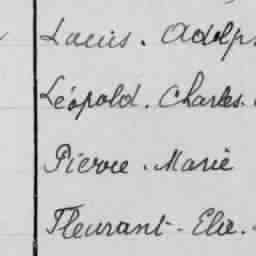 Louis. Adolp
Léopold. Charles.
Pierre. Marie
Fleurant. Elie.